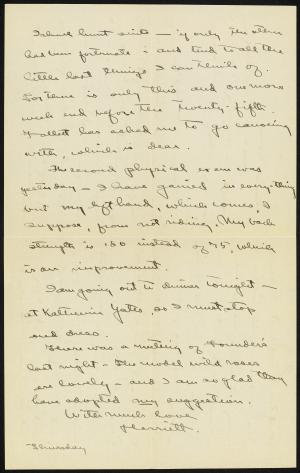 I shall hunt suits — if only the
has been fortunate — and tend to all the
little last things I can think of.
For there is only this and one more
week end before the twenty-fifth.
has asked me to go canoeing
with, which is dear.
The second physical exam was
yesterday — I have gained in everything
but my left hand, which comes, I
suppose, from not riding. My back
strength is 130 instead of 75, which
is an improvement.
I am going out to dinner tonight —
at Katherine Yates, so I must stop
and dress.
There was a meeting of Founders
last night — The model wild roses
are lovely — and I am so glad they
have adopted my suggestion.
With much love
Harriett.
Thursday